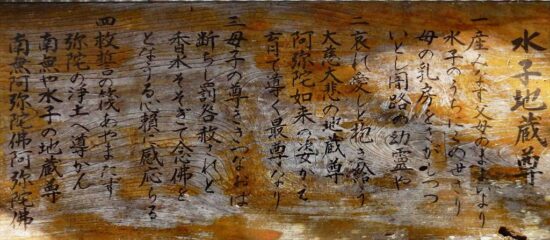 水子地蔵尊
一産くなす父母のよまいより
水子のうちにこの世さり
母の乳房をさがしつつ
いとし闇路の幼霊や
二哀れ愛しと抱き給う
大慈大悲の地蔵尊
阿弥陀如来の姿かえ
育て導く最尊なり
三母子の尊ききづなおば
断らし罰各救これと
香水そそぎて念佛を
となうる心頼に感応らる
四救誓の後あやまたず
弥陀の浄土へ導かん
南無や水子の地蔵尊
南無阿弥陀佛阿弥陀佛